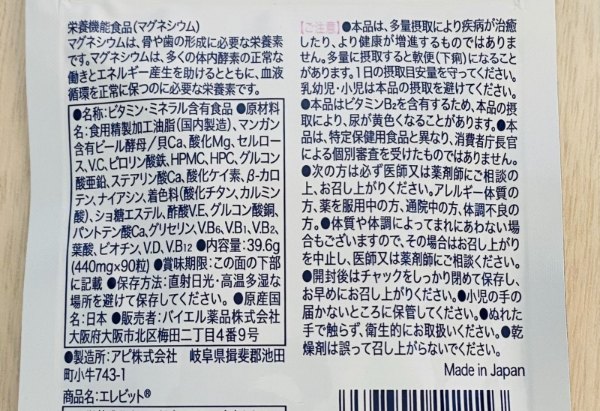 栄養機能食品(マグネシウム)
マグネシウムは、骨や歯の形成に必要な栄養素
です。マグネシウムは、多くの体内酵素の正常な
働きとエネルギー産生を助けるとともに、血液
循環を正常に保つのに必要な栄養素です。
●名称:ビタミン・ミネラル含有食品 ●原材料
名:食用精製加工油脂(国内製造)、マンガン
含有ビール酵母/貝Ca、酸化Mg、セルロー
ス、V.C、ピロリン酸鉄、HPMC、HPC、グルコン
酸亜鉛、ステアリン酸Ca、酸化ケイ素、β-カロ
テン、ナイアシン、着色料(酸化チタン、カルミン
酸)、ショ糖エステル、酢酸V.E、グルコン酸銅、
パントテン酸Ca、グリセリン、V.B6、V.B1、V.B2、
葉酸、ビオチン、V.D、V.B12 ●内容量:39.6g
(440mg×90粒) ●賞味期限:この面の下部
に記載 ●保存方法:直射日光・高温多湿な
場所を避けて保存してください。 ●原産国
名:日本 ●販売者:バイエル薬品株式会社
大阪府大阪市北区梅田二丁目4番9号
●製造所:アピ株式会社 岐阜県揖斐郡池田
町小牛743-1
商品名:エレビット®
【ご注意】●本品は、多量摂取により疾病が治癒
したり、より健康が増進するものではありま
せん。多量に摂取すると軟便(下痢)になること
があります。1日の摂取目安量を守ってください。
乳幼児・小児は本品の摂取を避けてください。
●本品はビタミンB2を含有するため、本品の摂
取により、尿が黄色くなることがあります。●本
品は、特定保健用食品と異なり、消費者庁長官
による個別審査を受けたものではありません。
●次の方は必ず医師又は薬剤師にご相談の
上、お召し上がりください。アレルギー体質の
方、薬を服用中の方、通院中の方、体調不良の
方。●体質や体調によってまれにあわない場
合もございますので、その場合はお召し上がり
を中止し、医師又は薬剤師にご相談ください。
●開封後はチャックをしっかり閉めて保存し、
お早めにお召し上がりください。●小児の手の
届かないところに保管してください。●ぬれた
手で触らず、衛生的にお取扱いください。●乾
燥剤は誤って召し上がらないでください。
Made in Japan